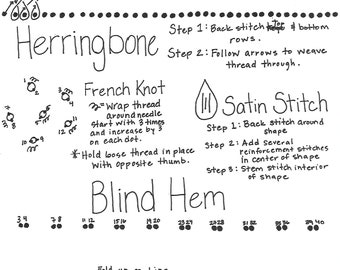 Herringbone
Step 1: Back stitch top & bottom
rows.
Step 2: Follow arrows to weave
thread through.
French Knot
= Wrap thread
around needle
start with 3 times
and increase by 3
on each dot.
*Hold loose thread in place
with opposite thumb.
Satin Stitch
Step 1: Back stitch around
shape
Step 2: Add several
reinforcement stitches
in center of shape
Step 3: Stem stitch interior
of shape
Blind Hem
34 78 11 12 15 16 19 20 23 24 27 28 31 32 35 36 39 40